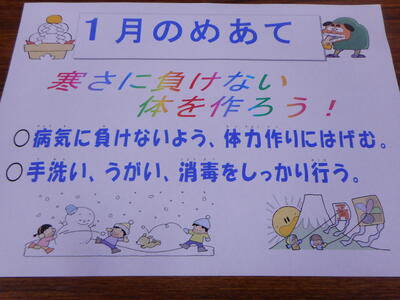 1月のめあて
寒さに負けない
体を作ろう！
○病気に負けないよう、体力作りにはげむ。
○手洗い、うがい、消毒をしっかり行う。